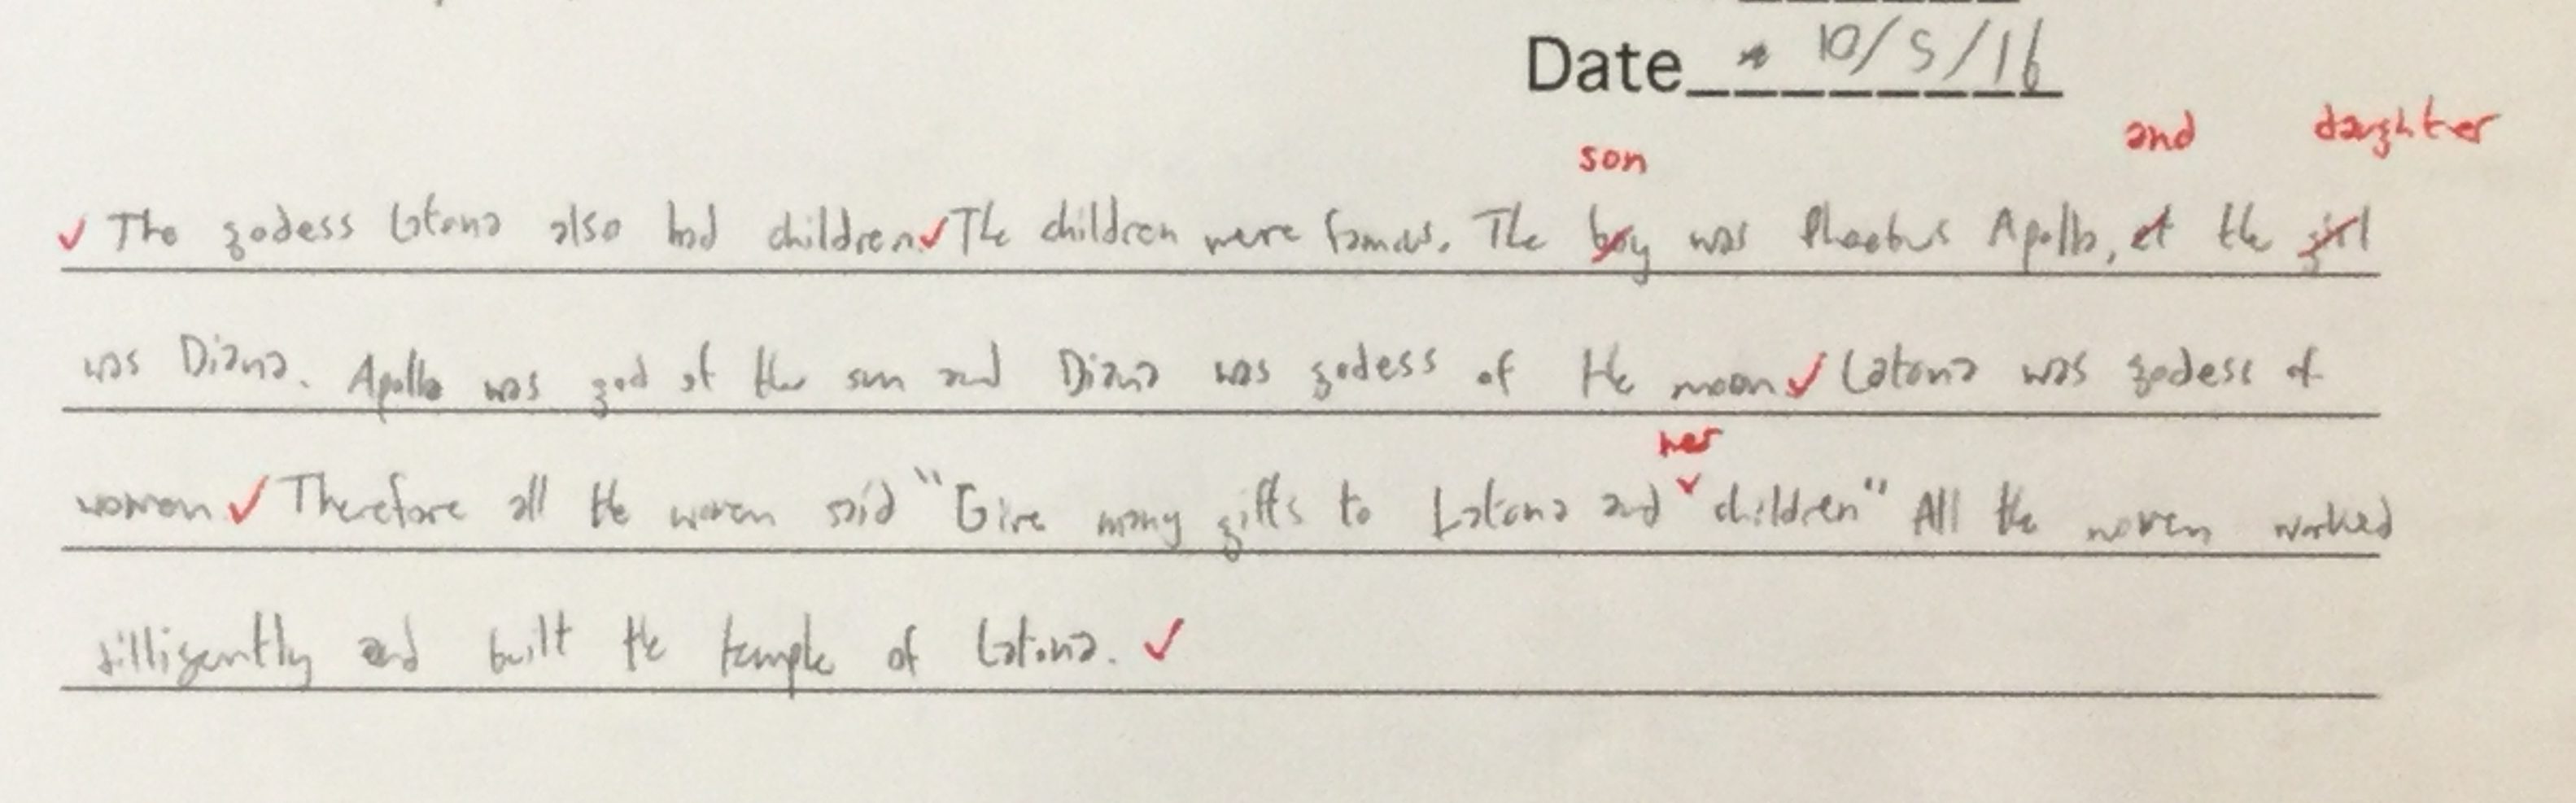 Date 10/5/16
son and daughter
✓ The godess Latona also had children.✓ The children were famous. The boy was Phoebus Apollo, et the girl
was Diana. Apollo was god of the sun and Diana was godess of the moon ✓ Latona was godess of
her
women ✓ Therefore all the women said "Give many gifts to Latona and ˅ children" All the women worked
dilligently and built the temple of Latona. ✓